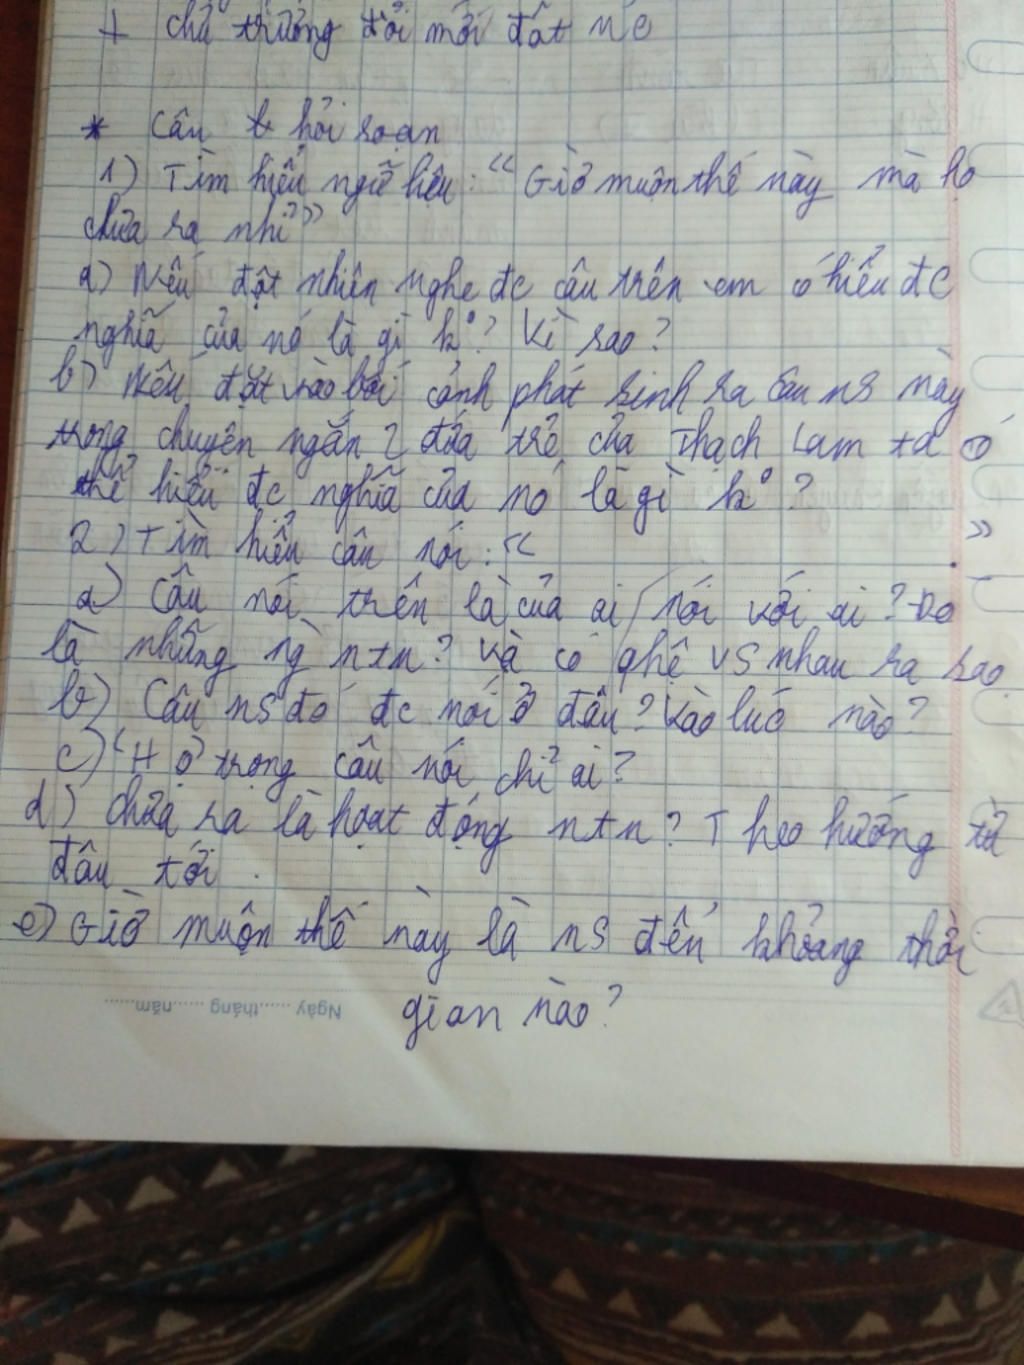 + chủ trương đổi mới đất nc
* Câu hỏi soạn
1) Tìm hiểu ngữ liệu: "Giờ muộn thế này mà họ
chưa ra nhỉ"
a) Nếu đột nhiên nghe đc câu trên em có hiểu đc
nghĩa của nó là gì k°? Vì sao?
b) Nếu đặt vào bối cảnh phát sinh ra câu ns này
trong chuyện ngắn 2 đứa trẻ của Thạch Lam ta có
thể hiểu đc nghĩa của nó là gì k°?
2) Tìm hiểu câu nói: " "
a) Câu nói trên là của ai / nói với ai? Đó
là những ng ntn? Và có qhệ vs nhau ra sao
b) Câu ns đó đc nói ở đâu? Vào lúc nào?
c) "Họ trong câu nói chỉ ai?
d) chưa ra là hoạt động ntn? Theo hướng từ
đâu tới.
e) Giờ muộn thế này là ns đến khoảng thời
gian nào?
Ngày ......tháng ......năm..........